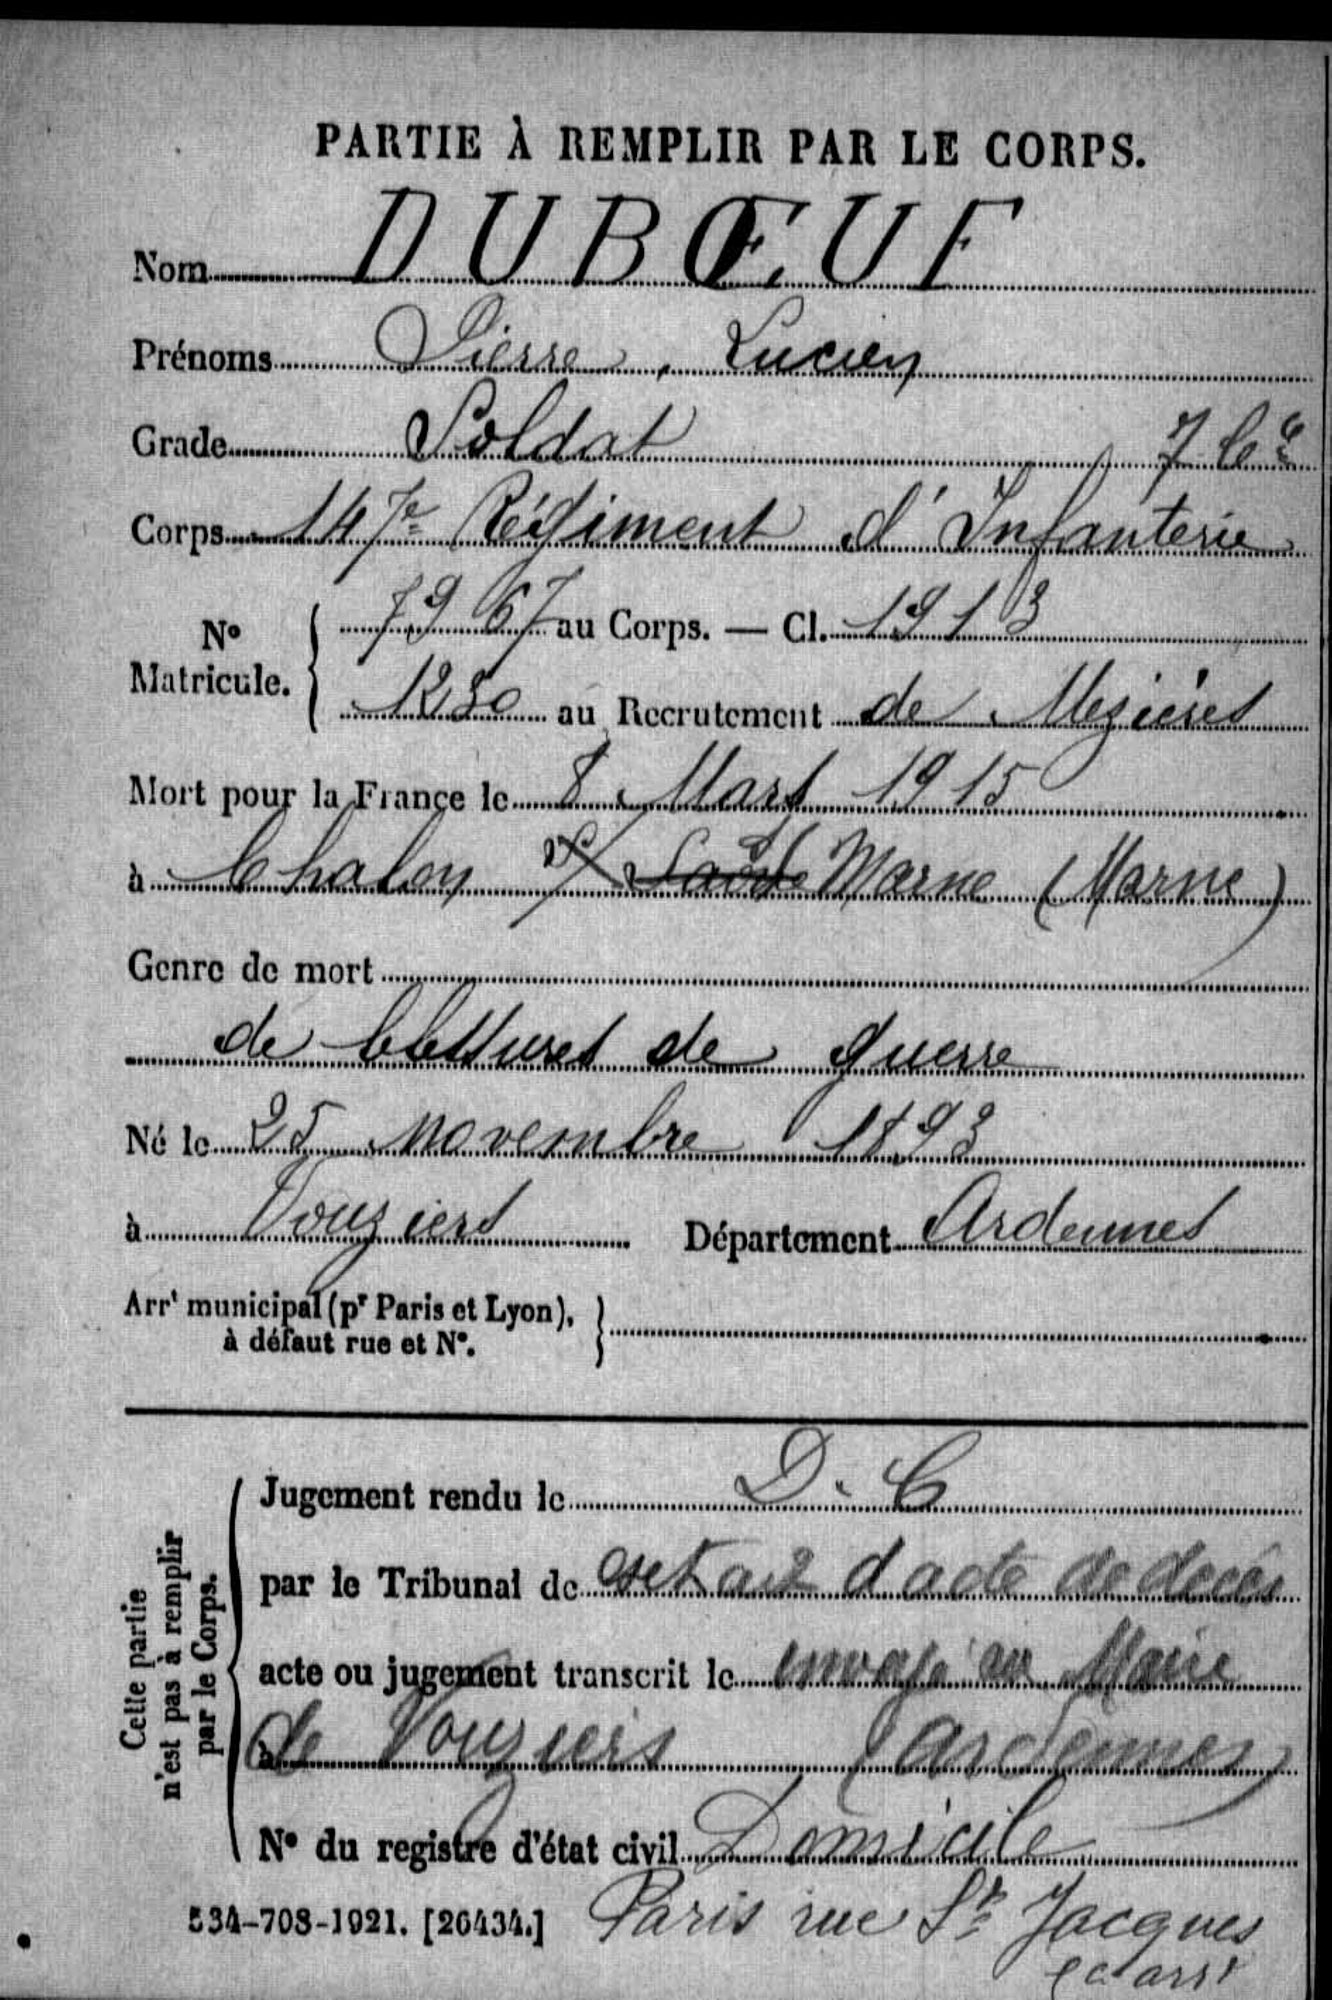 PARTIE À REMPLIR PAR LE CORPS.
Nom DUBŒUF
Prénoms Pierre, Lucien
Grade Soldat 7 Cie
Corps 147e Régiment d'Infanterie
No Matricule. { 7967 au Corps. — Cl. 1913
1230 au Recrutement de Mezières
Mort pour la France le 8 Mars 1915
à Chalon s/ Saône Marne (Marne)
Genre de mort
de blessures de guerre
Né le 25 novembre 1893
à Vouziers Département Ardennes
Arrt municipal (pr Paris et Lyon),
à défaut rue et No.
Cette partie
n'est pas à remplir
par le Corps.
Jugement rendu le D. C
par le Tribunal de d'acte de décès
acte ou jugement transcrit le Maire
à de Vouziers (Ardennes)
No du registre d'état civil Domicile
534-708-1921. [26434.] Paris rue St Jacques
arrt